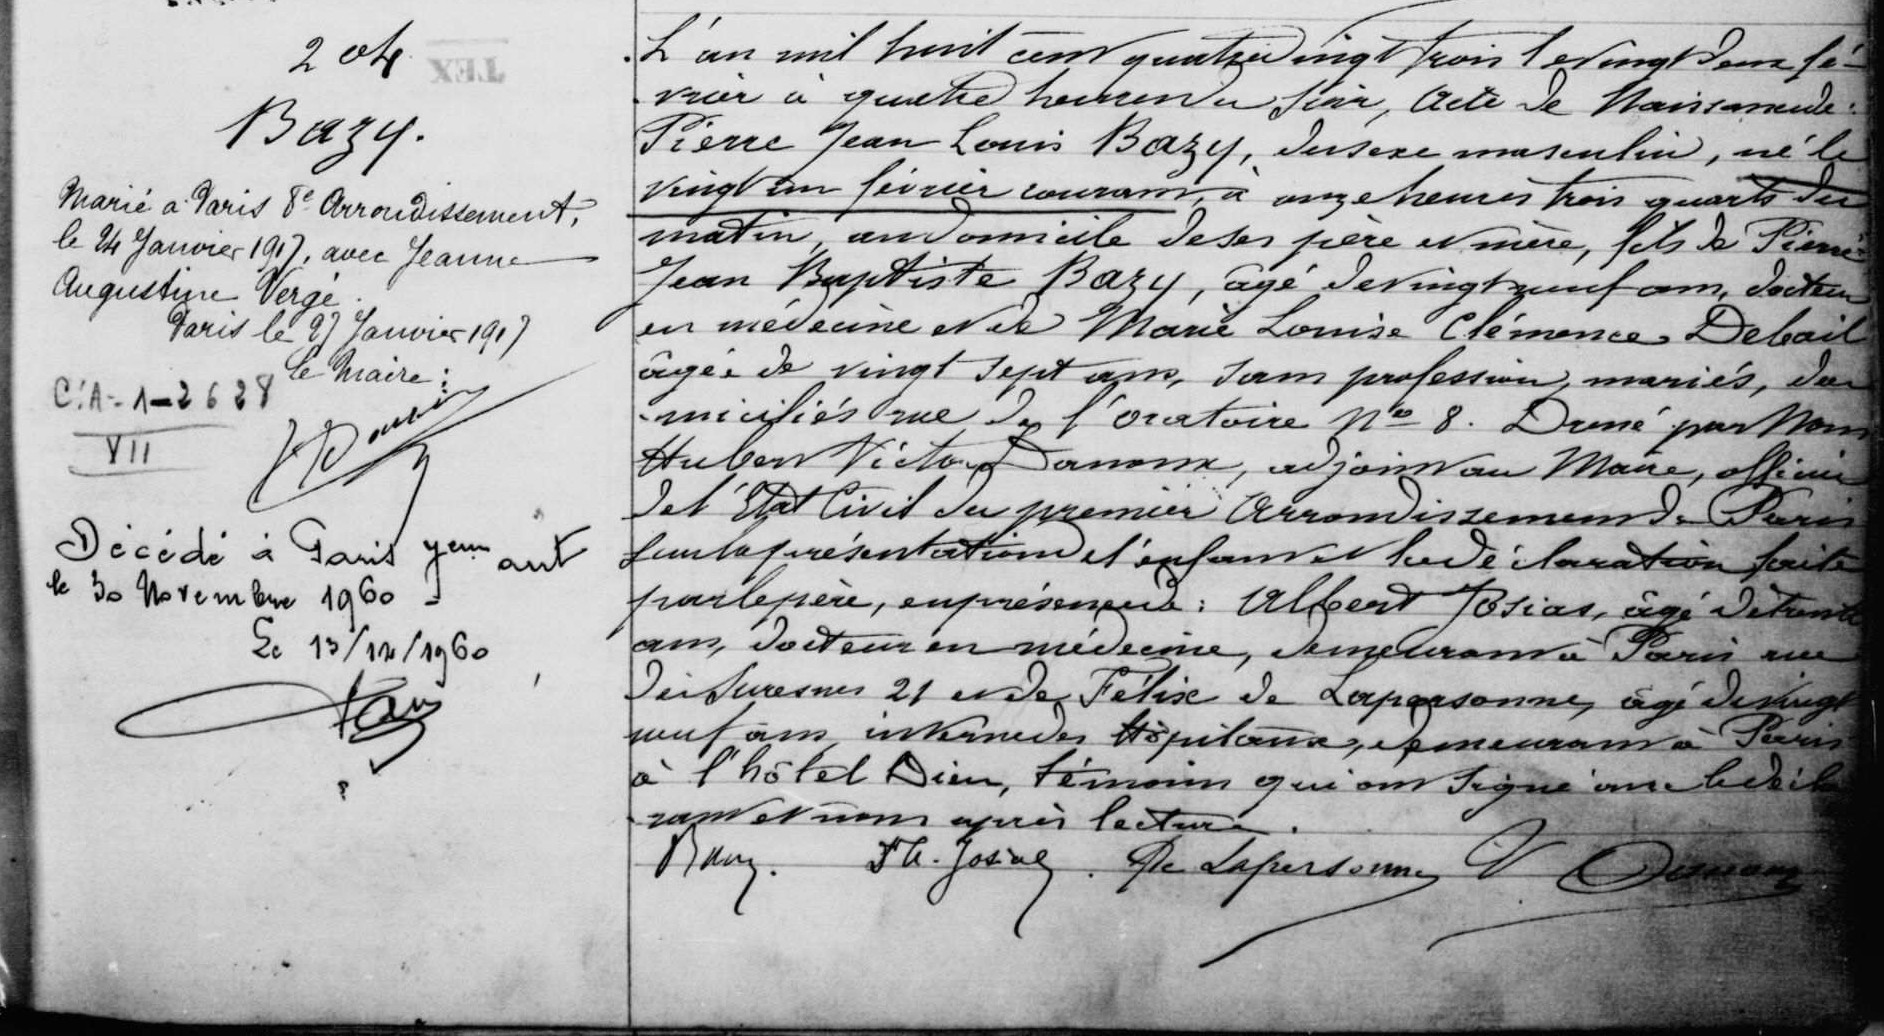 204
Bazy.
Marié à Paris 8e Arrondissement,
le 24 Janvier 1917, avec Jeanne
Augustine Vergé.
Paris le 27 Janvier 1917
Le Maire :
C.A-1-2628
VII
Décédé à Paris 7eme art
le 30 Novembre 1960 -
Le 13/12/1960
L'an mil huit cent quatre vingt trois le vingt deux fé-
vrier à quatre heures du soir, Acte de Naissance de :
Pierre Jean Louis Bazy, du sexe masculin, né le
vingt un février courant, à onze heures trois quarts du
matin, au domicile de ses père et mère, fils de Pierre
Jean Baptiste Bazy, âgé de vingt neuf ans, docteur
en médecine et de Marie Louise Clémence Debail
âgée de vingt sept ans, sans profession, mariés, do-
miciliés rue de l'oratoire No 8. Dressé par Nous
Hubert Victor Danoux, adjoint au Maire, officier
de l'Etat Civil du premier Arrondissement de Paris
sur la présentation de l'enfant et la déclaration faite
par le père, en présence de : Albert Josias, âgé de trente
ans, docteur en médecine, demeurant à Paris rue
de Suresnes 21 et de Félix de Lapersonne, âgé de vingt
neuf ans, interne des Hôpitaux, demeurant à Paris
à l'hôtel Dieu, témoins qui ont signé avec le décla-
rant et nous après lecture.
Bazy. Ab. Josias. De Lapersonne V Danoux